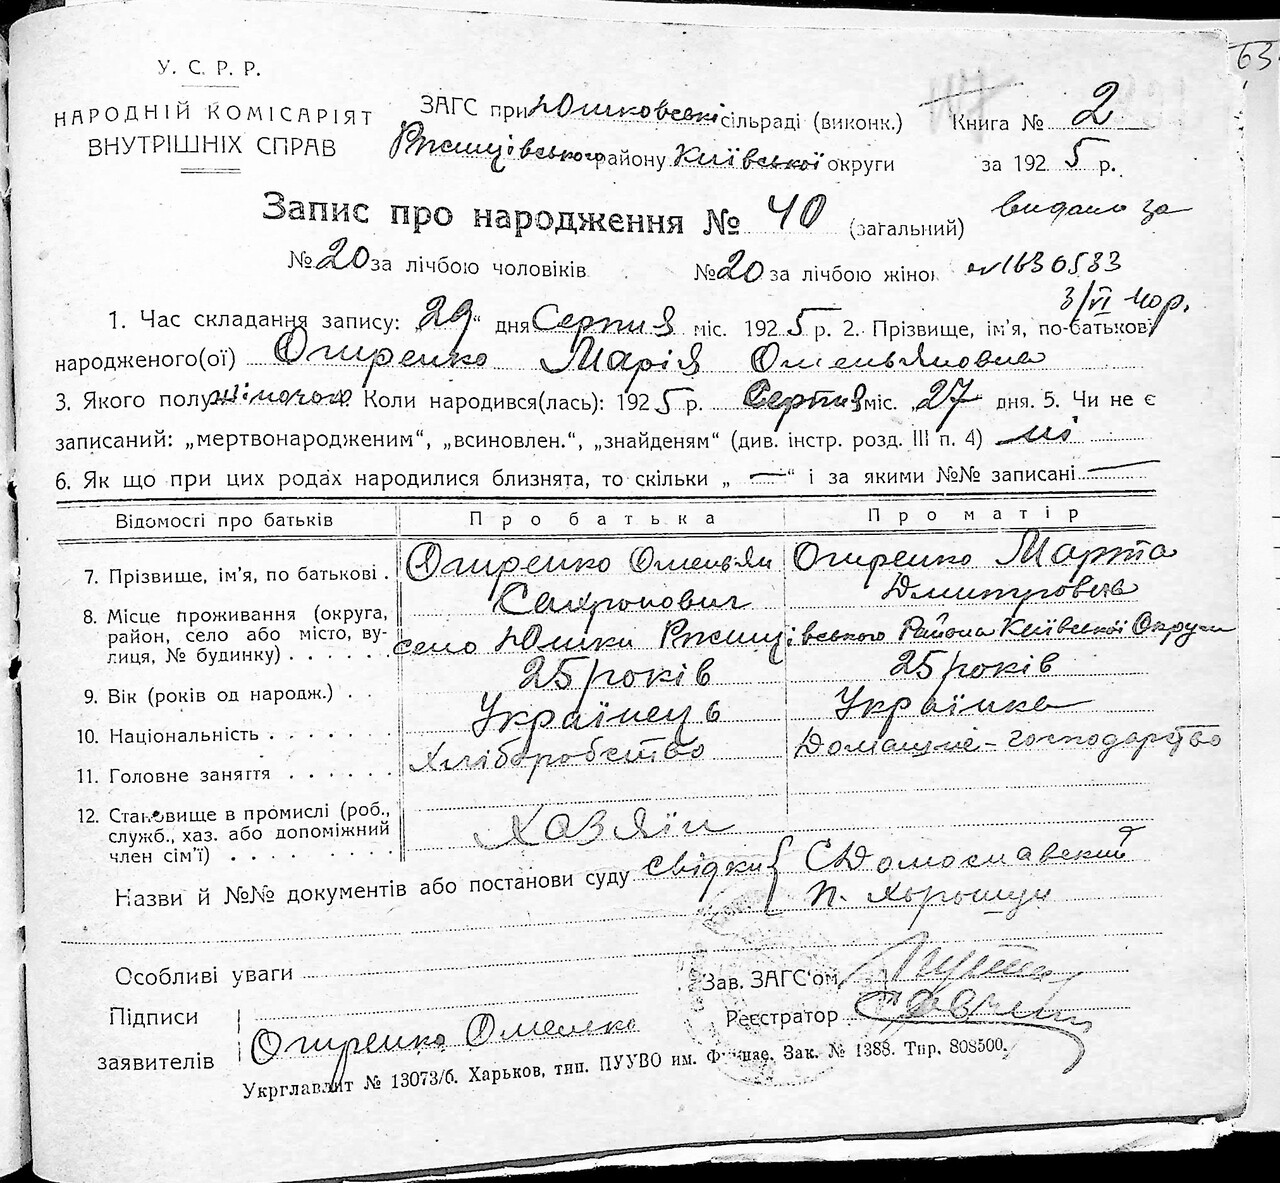 63
У. С. Р. Р.
НАРОДНІЙ КОМІСАРІЯТ
ВНУТРІШНІХ СПРАВ
ЗАГС при Юшковській сільраді (виконк.)
Ржищівського району Київської округи
Книга № 2
за 1925 р.
Запис про народження № 40 (загальний)
видано за
№ 20 за лічбою чоловіків № 20 за лічбою жінок
№ 1630533
3/VI
1. Час складання запису: „29“ дня Серпня міс. 1925 р. 2. Прізвище, ім'я, по-батькові
народженого(ої) Огиренко Марія Омельяновна
3. Якого полу жіночого Коли народився(лась): 1925 р. Серпня міс. 27 дня. 5. Чи не є
записаний: „мертвонародженим“, „всиновлен.“, „знайденям“ (див. інстр. розд. III п. 4) ні
6. Як що при цих родах народилися близнята, то скільки „—“ і за якими №№ записані —
Відомості про батьків Про батька Про матір
7. Прізвище, ім'я, по батькові . Огиренко Омельян Сахронович Огиренко Марта Дмитровна
8. Місце проживання (округа,
район, село або місто, ву-
лиця, № будинку) . . . . . . село Юшки Ржищівського Района Київської Округи
9. Вік (років од народж.) . . 25 років 25 років
10. Національність . . . . . . . Українець Українка
11. Головне заняття . . . . . . Хліборобство Домашнє-господарство
12. Становище в промислі (роб.,
служб., хаз. або допоміжний
член сім'ї) . . . . . . . . . Хозяїн
Назви й №№ документів або постанови суду свідки { С Домославский
П. Хорошун
Особливі уваги
Зав. ЗАГС'ом
Підписи
Реєстратор
заявителів Огиренко Омелько
Укрглавліт № 13073/б. Харьков, тип. ПУУВО им. Фрунзе. Зак. № 1388. Тир. 808500.